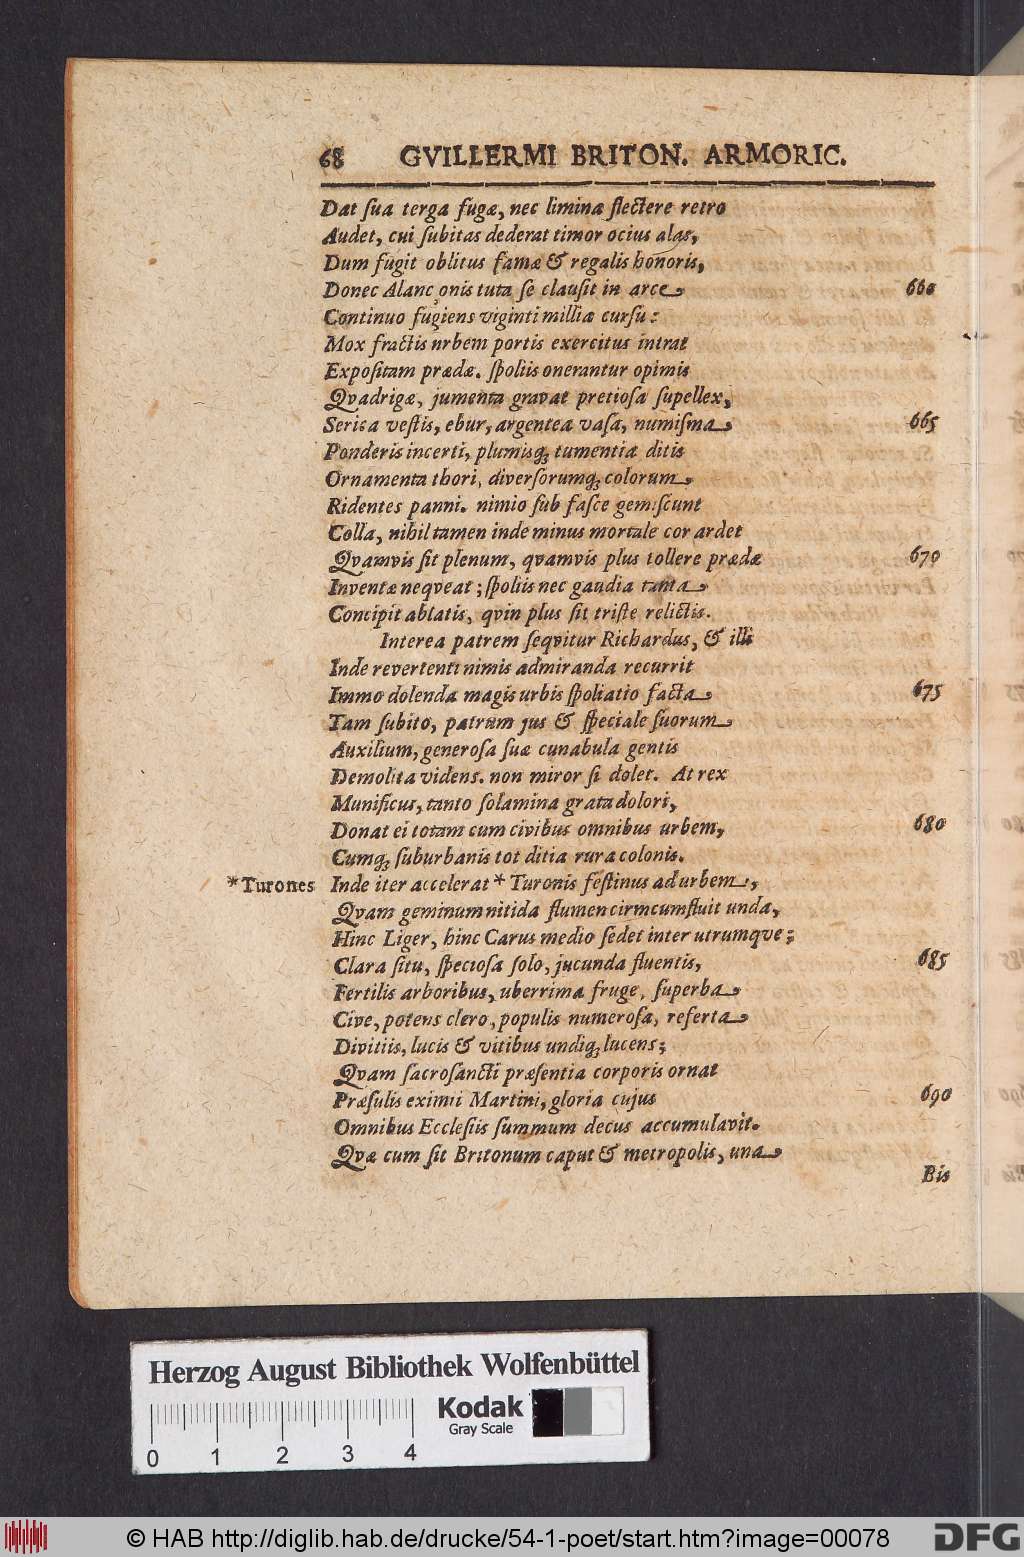 68 GVILLERMI BRITON. ARMORIC.
Dat ſua terga fugæ, nec limina flectere retro
Audet, cui ſubitas dederat timor ocius alas,
Dum fugit oblitus famæ & regalis honoris,
Donec Alançonis tuta ſe clauſit in arce 660
Continuo fugiens viginti millia curſu:
Mox fractis nrbem portis exercitus intrat
Expoſitam prædæ. ſpoliis onerantur opimis
Qvadrigæ, jumenta gravat pretioſa ſupellex,
Serica veſtis, ebur, argentea vaſa, numiſma 665
Ponderis incerti, plumisq; tumentia ditis
Ornamenta thori, diverſorumq; colorum
Ridentes panni. nimio ſub faſce gemiſcunt
Colla, nihil tamen inde minus mortale cor ardet
Qvamvis ſit plenum, qvamvis plus tollere prædæ 670
Inventæ neqveat; ſpoliis nec gaudia tanta
Concipit ablatis, qvin plus ſit triſte relictis.
Interea patrem ſeqvitur Richardus, & illi
Inde revertenti nimis admiranda recurrit
Immo dolenda magis urbis ſpoliatio facta 675
Tam ſubito, patrum jus & ſpeciale ſuorum
Auxilium, generoſa ſuæ cunabula gentis
Demolita videns. non miror ſi dolet. At rex
Munificus, tanto ſolamina grata dolori,
Donat ei totam cum civibus omnibus urbem, 680
Cumq; ſuburbanis tot ditia rura colonis.
*Turones Inde iter accelerat * Turonis feſtinus ad urbem,
Qvam geminum nitida flumen cirmcumfluit unda,
Hinc Liger, hinc Carus medio ſedet inter utrumque;
Clara ſitu, ſpecioſa ſolo, jucunda fluentis, 685
Fertilis arboribus, uberrima fruge, ſuperba
Cive, potens clero, populis numeroſa, referta
Divitiis, lucis & vitibus undiq; lucens;
Qvam ſacroſancti præſentia corporis ornat
Præſulis eximii Martini, gloria cujus 690
Omnibus Eccleſiis ſummum decus accumulavit.
Qvæ cum ſit Britonum caput & metropolis, una
Bis
Herzog August Bibliothek Wolfenbüttel
Kodak
Gray Scale
0 1 2 3 4
© HAB http://diglib.hab.de/drucke/54-1-poet/start.htm?image=00078
DFG